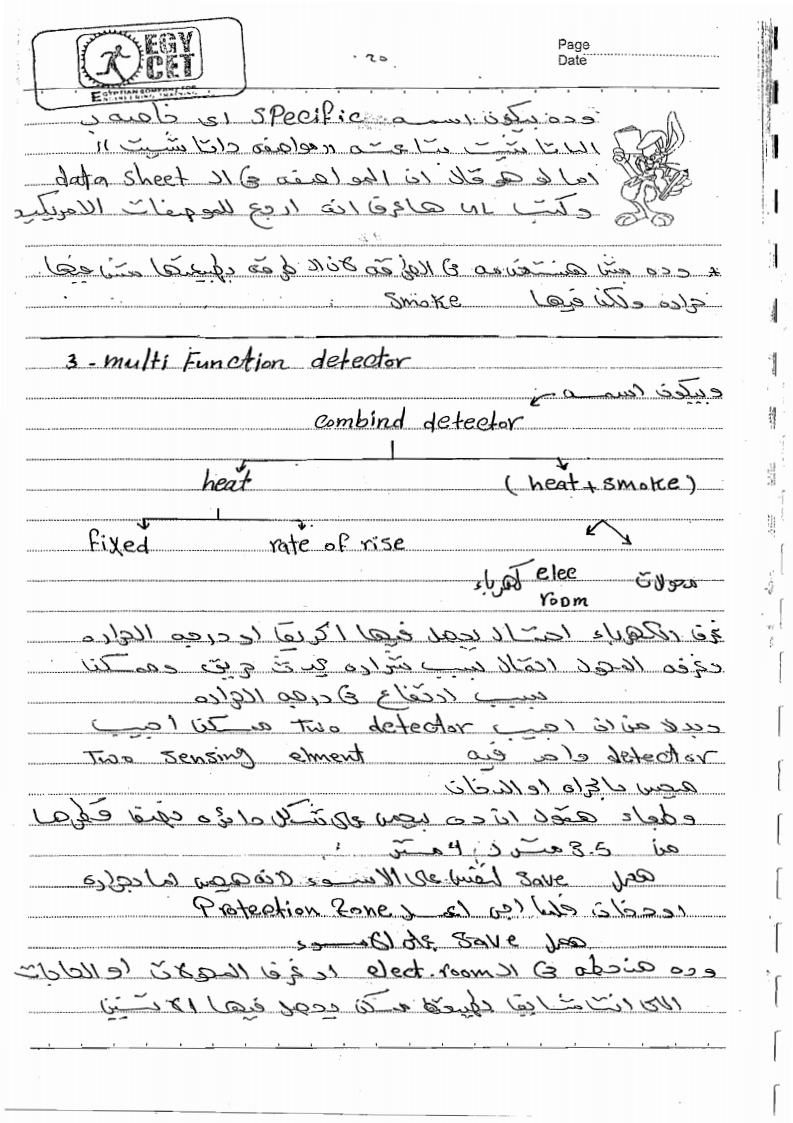 EGY
CET
EGYPTIAN COMPANY FOR
ENGINEERING TRAINING
٢٥
Page
Date
وده بيكون اسمه specific اى خاصه ب
الداتا شيت بتاعته "مواصفه داتا شيت"
اما لو هو قال ان المواصفه فى ال data sheet
وكتب UL هاعرف انه ارجع للموصفات الامريكيه
* وده مش هنستخدمه فى الغرفه لان الطرقه بطبيعتها مش فيها
حراره ولكن فيها smoke
3 - multi Function detector
وبيكون اسمه
combind detector
heat
(heat + smoke)
fixed
rate of rise
كهرباء elee room
محولات
غرف الكهرباء احتمال يحصل فيها احريقا او درجه الحراره
وغرفه المحول احتمال بسبب شراره يحدث حريق وممكنا
بسبب ارتفاع فى درجه الحراره
وبدلا من انى اجيب Two detector ممكن اجيب
detector واحد فيه Two sensing elment
هيحس بالحراه او الدخان
وطبعا هنقول ان ده بيحس على شكل دائره نصف قطرها
من 3.5 متر ل 4 متر
هعمل save لنفسى على الاسوء لانه هيحس اما بحراره
او دخان فلما اجى اعمل Protection Zone
هعمل save على الاسوء
وده هنحطه فى ال elect.room او غرف المحولات او الحاجات
الاى انت شايفا طبيعتها ممكن يحصل فيها الاتنين